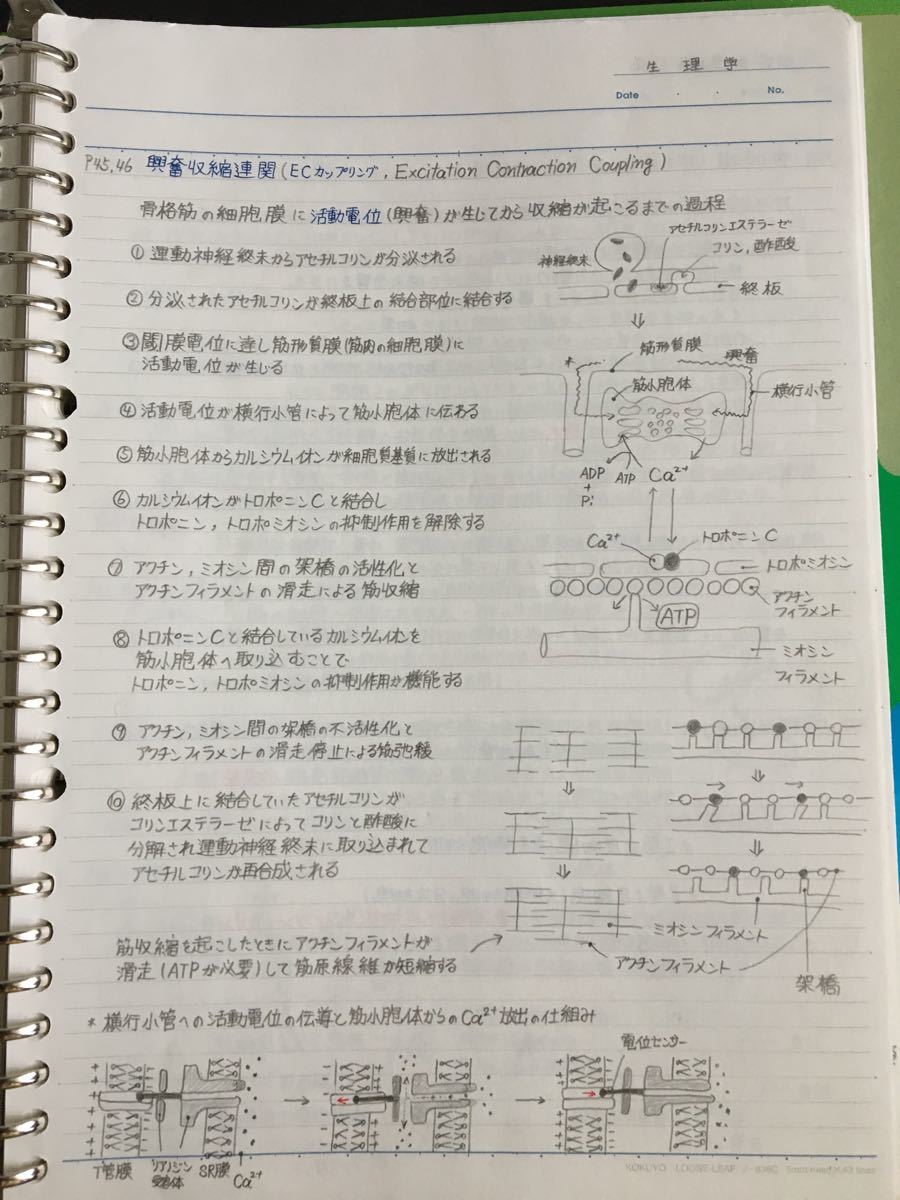 生理学
Date ・ ・ No.
P45,46 興奮収縮連関(ECカップリング, Excitation Contraction Coupling)
骨格筋の細胞膜に活動電位(興奮)が生じてから収縮が起こるまでの過程
① 運動神経終末からアセチルコリンが分泌される
② 分泌されたアセチルコリンが終板上の結合部位に結合する
③ 閾膜電位に達し筋形質膜(筋肉の細胞膜)に
活動電位が生じる
④ 活動電位が横行小管によって筋小胞体に伝わる
⑤ 筋小胞体からカルシウムイオンが細胞質基質に放出される
⑥ カルシウムイオンがトロポニンCと結合し
トロポニン, トロポミオシンの抑制作用を解除する
⑦ アクチン, ミオシン間の架橋の活性化と
アクチンフィラメントの滑走による筋収縮
⑧ トロポニンCと結合しているカルシウムイオンを
筋小胞体へ取り込むことで
トロポニン, トロポミオシンの抑制作用が機能する
⑨ アクチン, ミオシン間の架橋の不活性化と
アクチンフィラメントの滑走停止による筋弛緩
⑩ 終板上に結合していたアセチルコリンが
コリンエステラーゼによってコリンと酢酸に
分解され運動神経終末に取り込まれて
アセチルコリンが再合成される
筋収縮を起こしたときにアクチンフィラメントが
滑走(ATPが必要)して筋原線維が短縮する
アセチルコリンエステラーゼ
コリン, 酢酸
神経終末
終板
*
筋形質膜
興奮
筋小胞体
横行小管
ADP
+
Pi
ATP
Ca²⁺
Ca²⁺
トロポニンC
トロポミオシン
アクチン
フィラメント
ATP
ミオシン
フィラメント
ミオシンフィラメント
アクチンフィラメント
架橋
* 横行小管への活動電位の伝導と筋小胞体からのCa²⁺放出の仕組み
電位センサー
T管膜
リアノジン
受容体
SR膜
Ca²⁺
KOKUYO LOOSE-LEAF